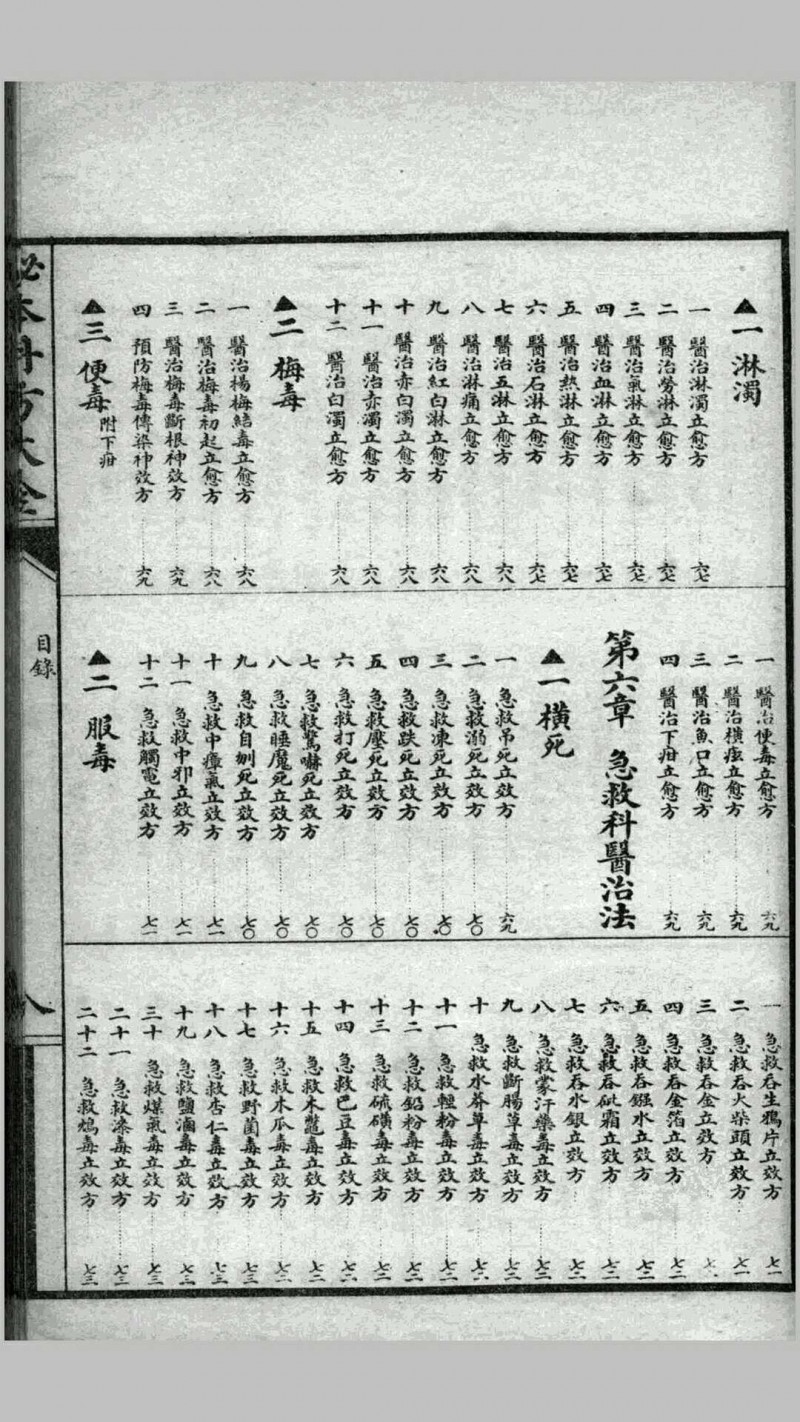 ▲一 淋濁
一 醫治淋濁立愈方 六七
二 醫治勞淋立愈方 六七
三 醫治氣淋立愈方 六七
四 醫治血淋立愈方 六七
五 醫治熱淋立愈方 六七
六 醫治石淋立愈方 六七
七 醫治五淋立愈方 六八
八 醫治淋痛立愈方 六八
九 醫治紅白淋立愈方 六八
十 醫治赤白濁立愈方 六八
十一 醫治赤濁立愈方 六八
十二 醫治白濁立愈方 六八
▲二 梅毒
一 醫治楊梅結毒立愈方 六八
二 醫治梅毒初起立愈方 六八
三 醫治梅毒斷根神效方 六九
四 預防梅毒傳染神效方 六九
▲三 便毒 附下疳
一 醫治便毒立愈方 六九
二 醫治橫痃立愈方 六九
三 醫治魚口立愈方 六九
四 醫治下疳立愈方 六九
第六章 急救科醫治法
▲一 橫死
一 急救吊死立效方 六九
二 急救溺死立效方 七〇
三 急救凍死立效方 七〇
四 急救跌死立效方 七〇
五 急救壓死立效方 七〇
六 急救打死立效方 七〇
七 急救驚嚇死立效方 七〇
八 急救睡魔死立效方 七〇
九 急救自刎死立效方 七〇
十 急救中瘴氣立效方 七一
十一 急救中邪立效方 七一
十二 急救觸電立效方 七一
▲二 服毒
一 急救吞生鴉片立效方 七一
二 急救吞火柴頭立效方 七一
三 急救吞金立效方
四 急救吞金箔立效方 七二
五 急救吞鏹水立效方 七二
六 急救吞砒霜立效方 七二
七 急救吞水銀立效方 七二
八 急救蒙汗藥毒立效方 七二
九 急救斷腸草毒立效方 七二
十 急救水莽草毒立效方 七二
十一 急救輕粉毒立效方 七二
十二 急救鉛粉毒立效方 七二
十三 急救硫磺毒立效方 七二
十四 急救巴豆毒立效方 七二
十五 急救木虌毒立效方 七二
十六 急救木瓜毒立效方 七三
十七 急救野菌毒立效方 七三
十八 急救杏仁毒立效方 七三
十九 急救鹽滷毒立效方 七三
三十 急救煤氣毒立效方 七三
二十一 急救漆毒立效方 七三
二十二 急救鴆毒立效方 七三
秘本丹方大全
目錄
八